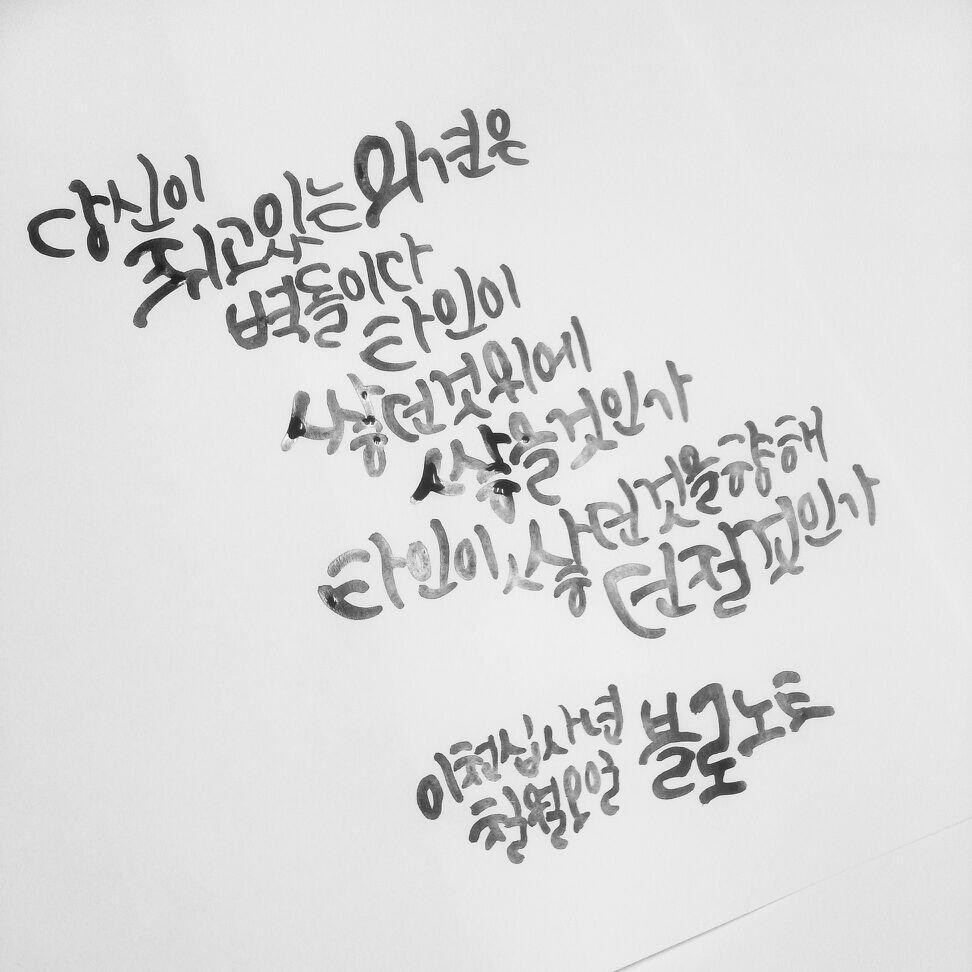 당신이
쥐고있는 의견은
벽돌이다
타인이
쌓던것위에
쌓을것인가
타인이 쌓던것을향해
던질것인가
이천십사년
칠월오일
볼고노트